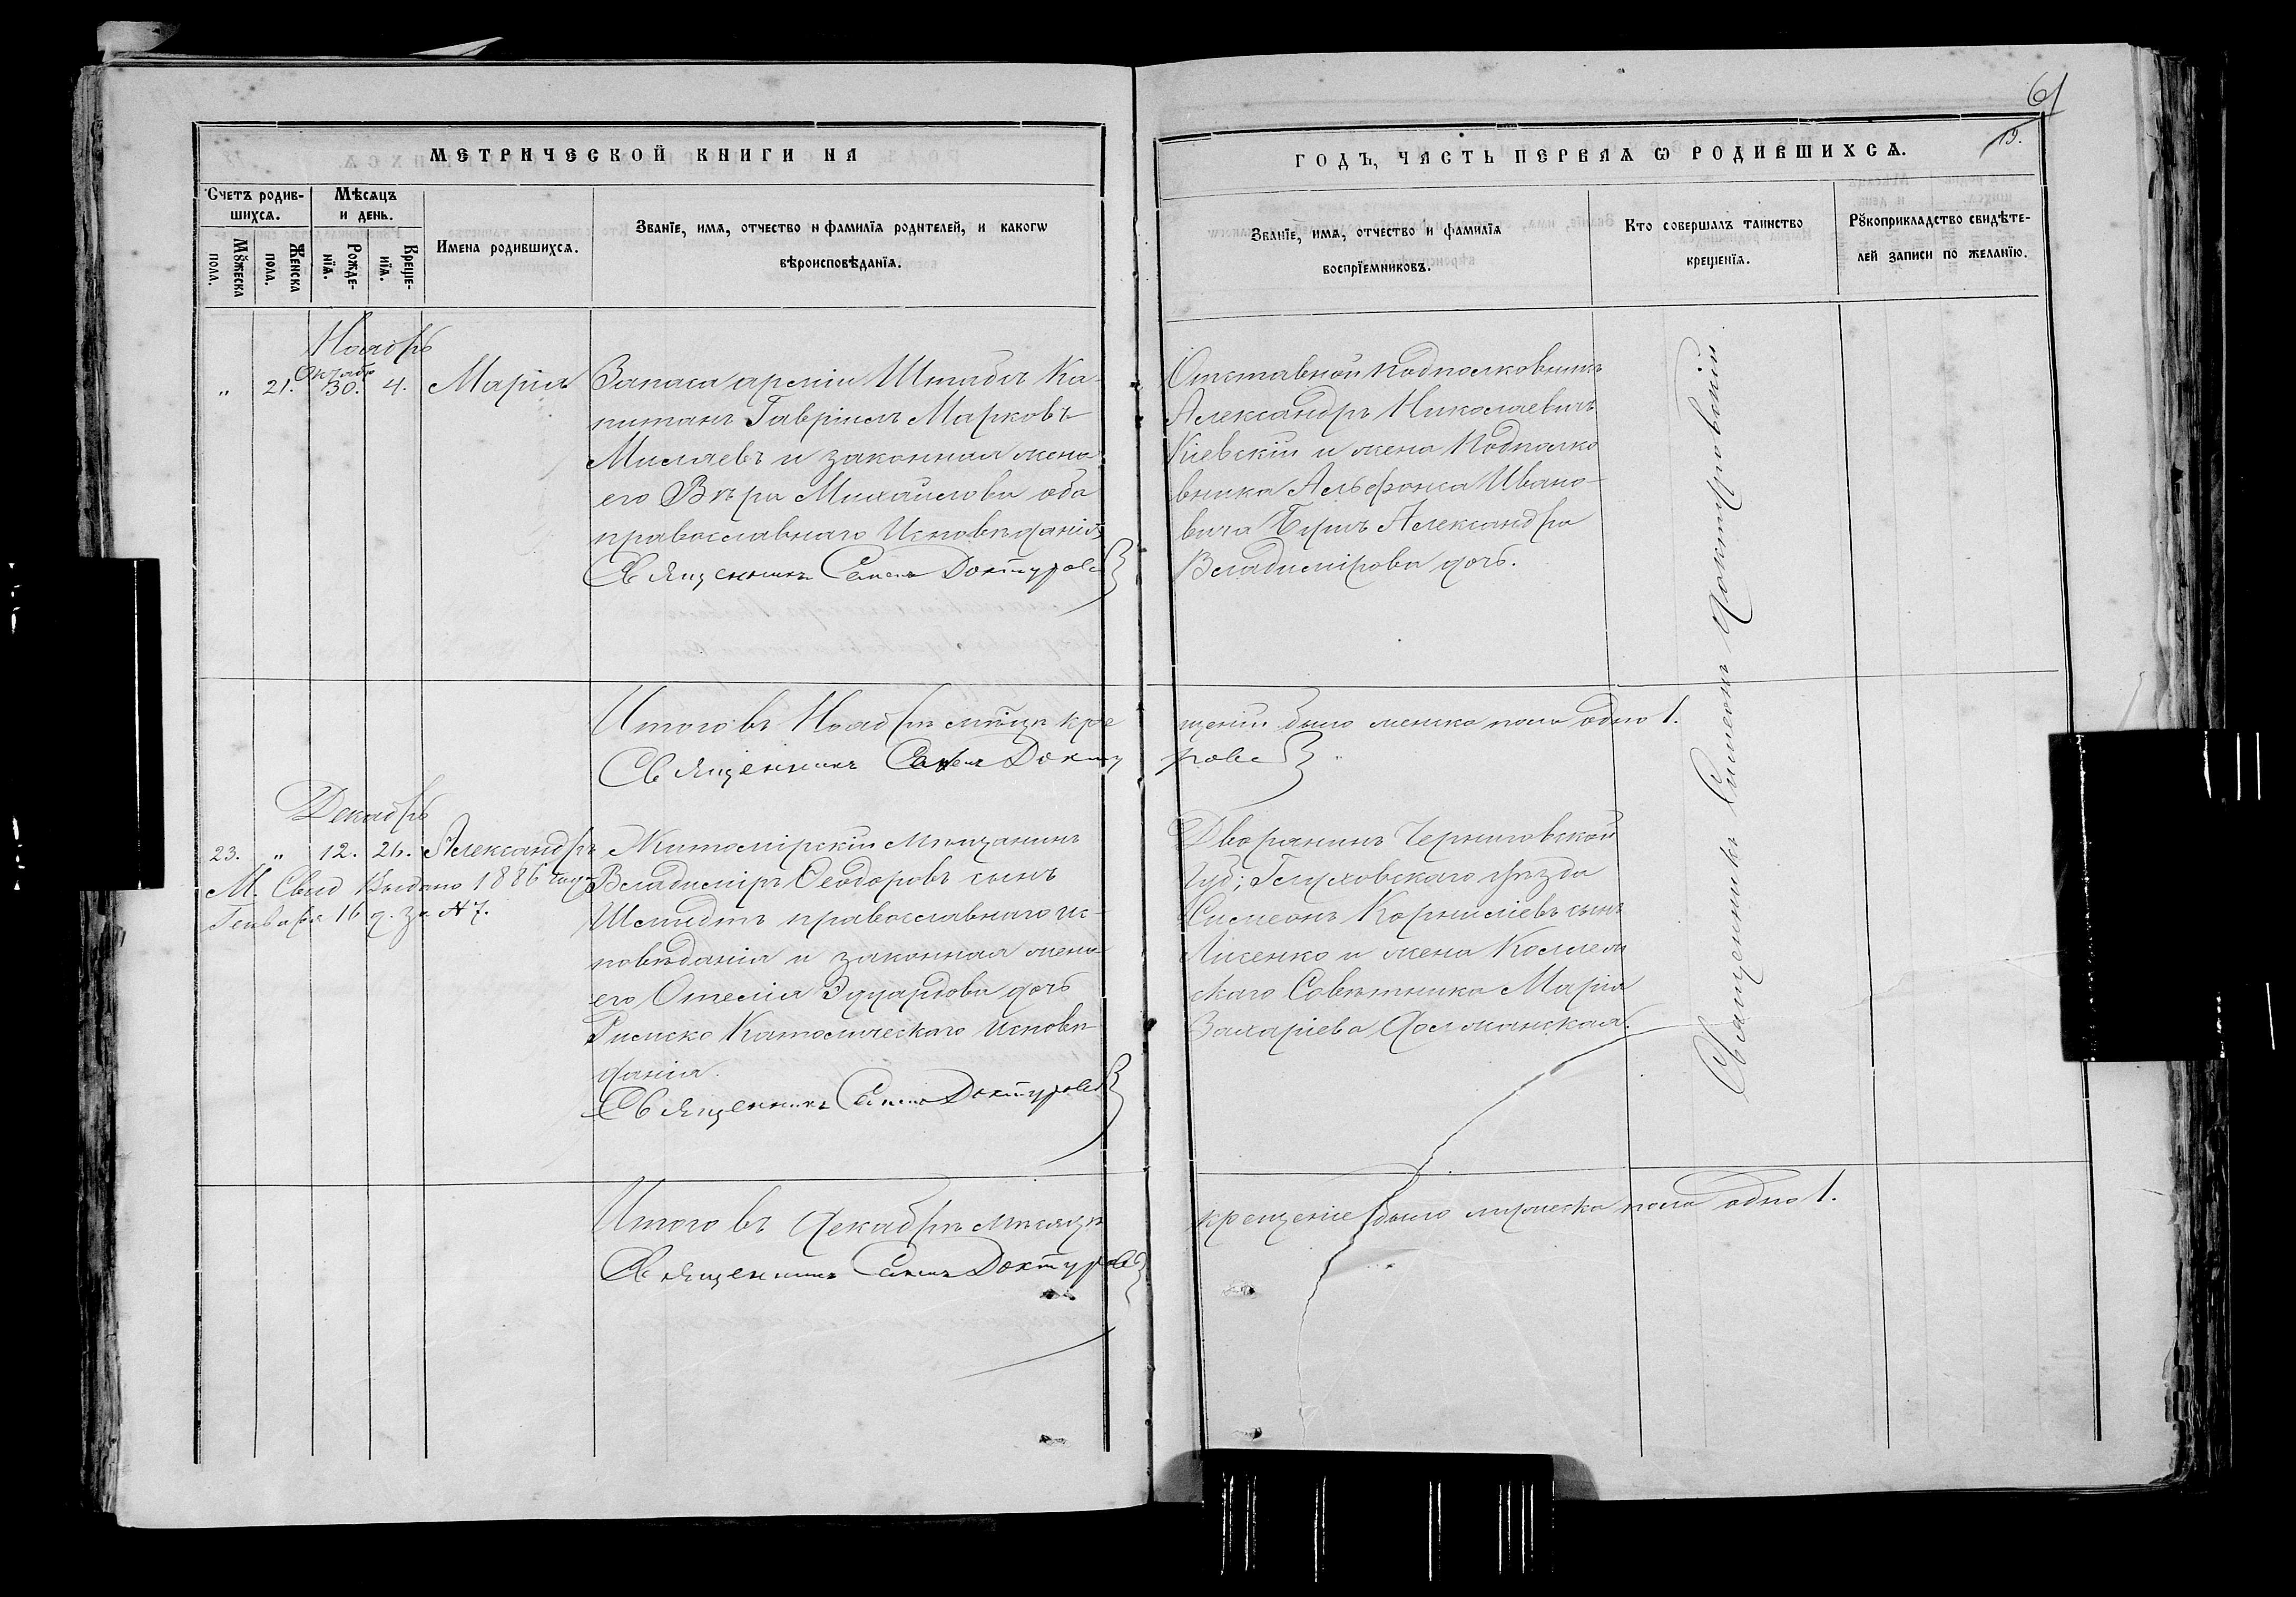 61
МЕТРИЧЕСКОЙ КНИГИ НА
ГОДЪ, ЧАСТЬ ПЕРВАЯ Ѡ РОДИВШИХСѦ.
15.
Счетъ родив-
шихсѧ.
Мѣсѧцъ
и день.
Мꙋжеска
пола.
Женска
пола.
Рожде-
нїѧ.
Креще-
нїѧ.
Имена родившихсѧ.
Званїе, имѧ, отчество и фамилїѧ родителей, и какогѡ
вѣроисповѣданїѧ.
Званїе, имѧ, отчество и фамилїѧ
воспрїемниковъ.
Кто совершалъ таинство
крещенїѧ.
Рꙋкоприкладство свидѣте-
лей записи по желанїю.
Ноябрь
Октябр
" 21. 30. 4. Марія
Запаса арміи Штабъ Ка-
питанъ Гавріилъ Марковъ
и законная жена
его Вѣра Михайлова оба
православнаго Исповѣданія
Священникъ Симеонъ Доктуровс
Отставной Подполковникъ
Александръ Николаевичъ
Кіевскій и жена Подполко
вника Альфонса Ивано-
вича Александра
Владимірова дочь.
Священникъ Симеонъ Доктуровскій
Итого въ Ноябрѣ мѣсяцѣ кре
щеній было женска пола одно 1.
Священникъ Симеонъ Докту
ровс
Декабрь
23. " 12. 26. Александръ
М. Свид выдано 1886 года
Генваря 16 д. за № 7.
Житомірскій Мѣщанинъ
Владиміръ Ѳеодоровъ сынъ
Шмидтъ православнаго ис-
повѣданія и законная жена
его Отелія Эдуардова дочь
Римско Католическаго Исповѣ
данія.
Священникъ Симеонъ Доктуровс
Дворянинъ Черниговской
Губ; Глуховскаго уѣзда
Симеонъ Корниліевъ сынъ
Лисенко и жена Коллеж
скаго Совѣтника Марія
Захаріева Должанская.
Итого въ Декабрѣ мѣсяцѣ
крещеніе было мужеска пола одно 1.
Священникъ Симеонъ Доктуровс